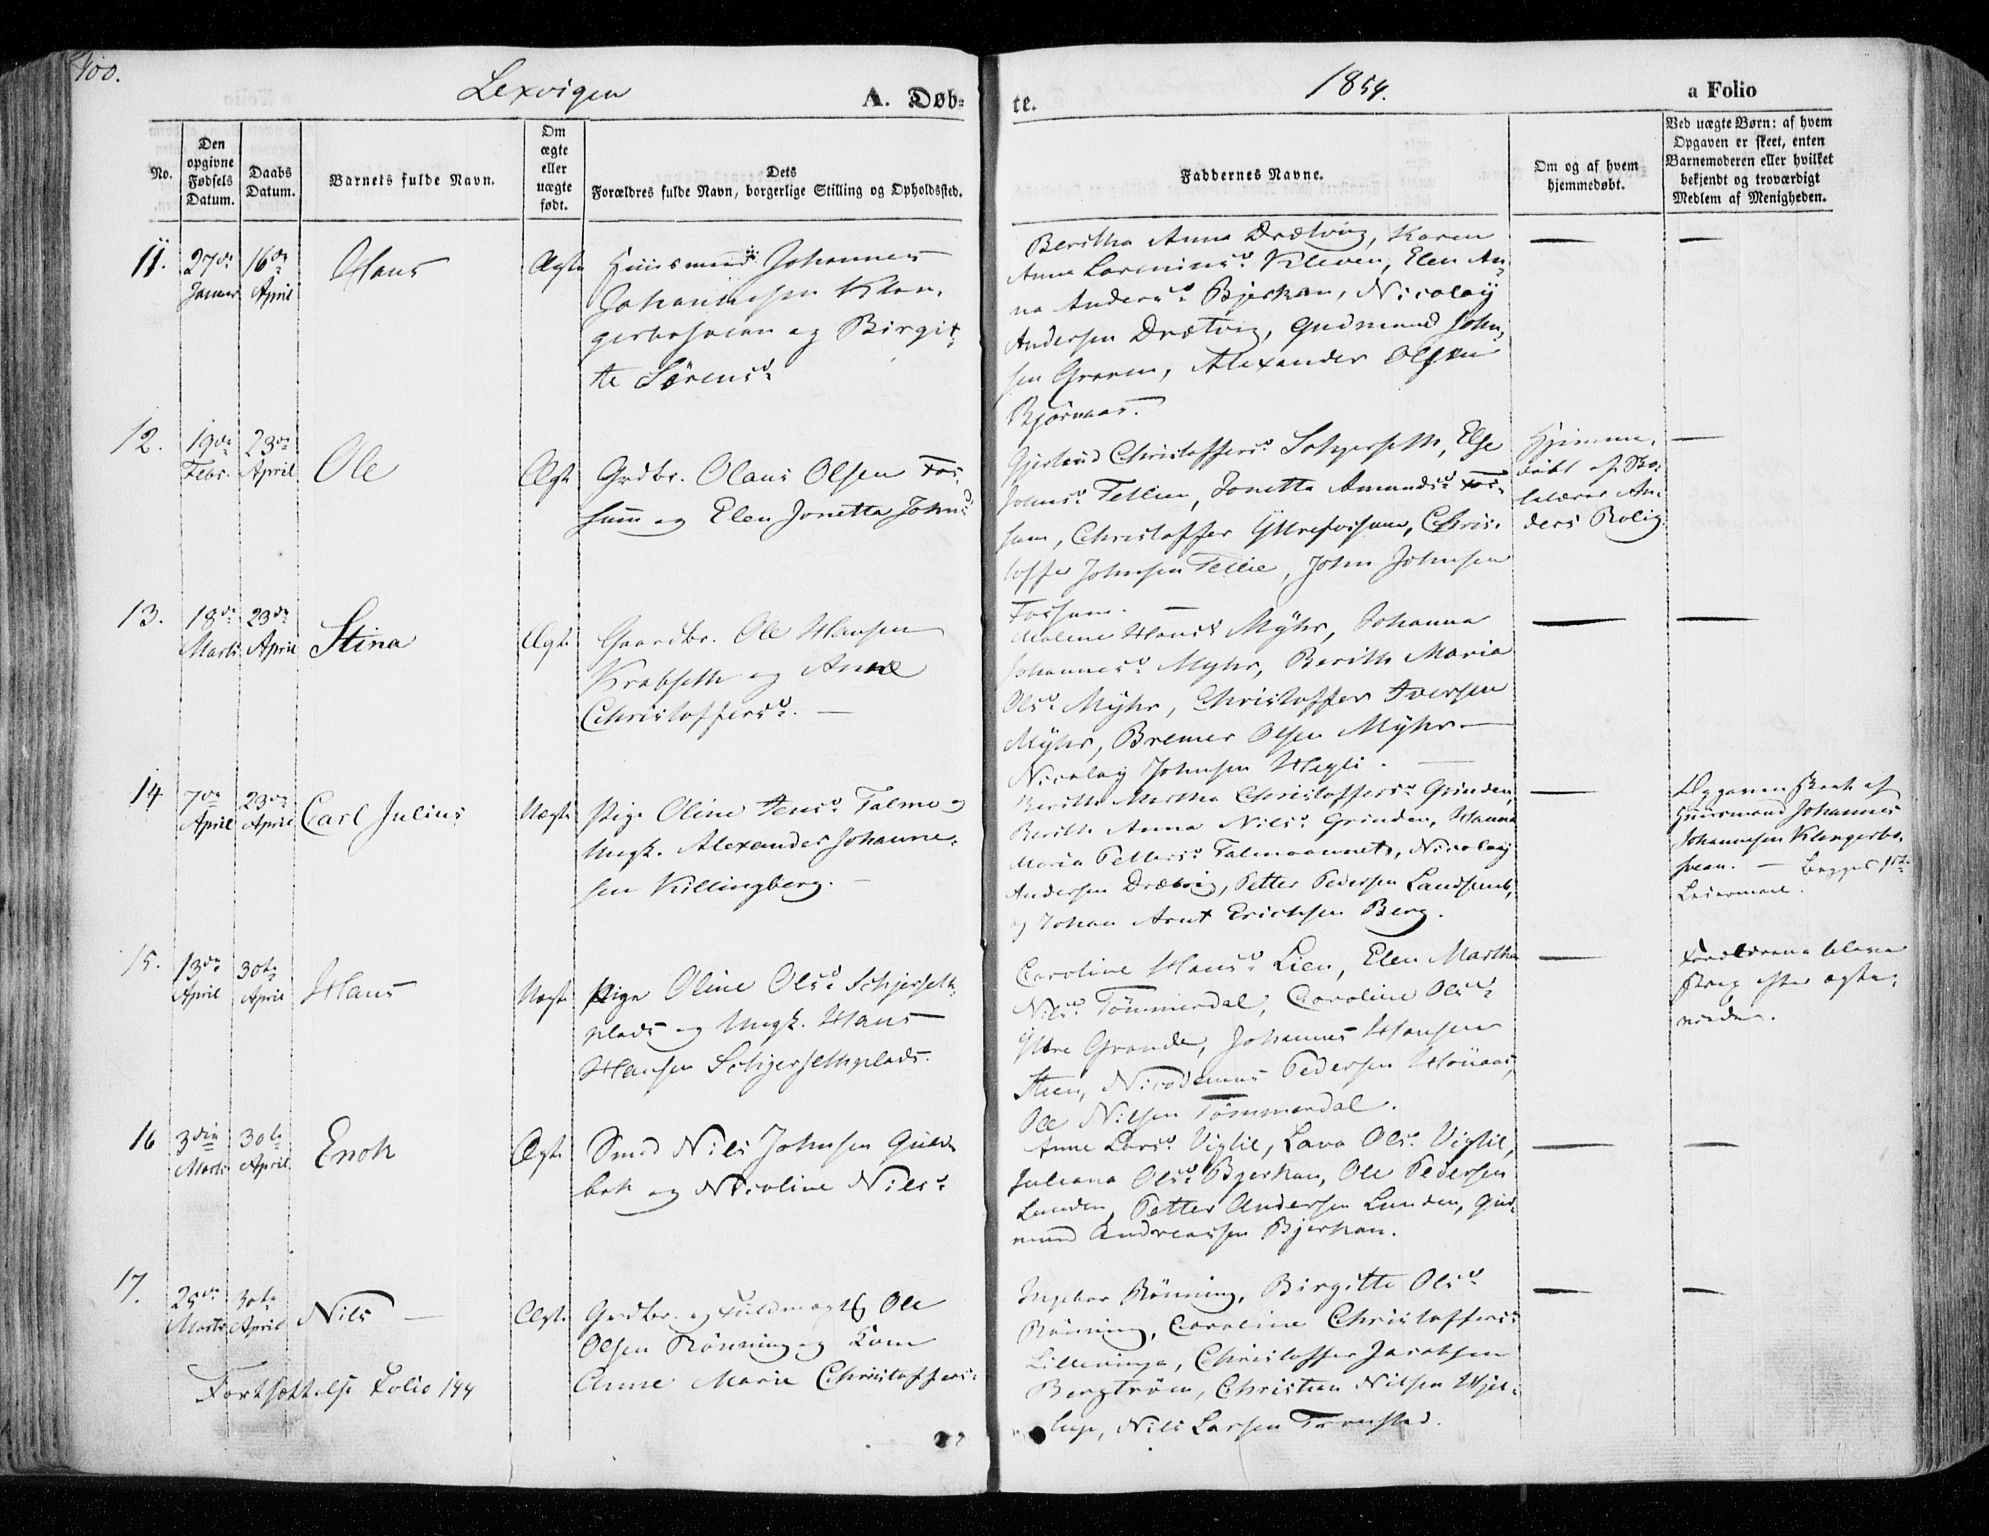 100.
Lexvigen
A. Døb-
te.
1854.
a Folio
No.
Den
opgivne
Fødsels
Datum.
Daabs
Datum.
Barnets fulde Navn.
Om
ægte
eller
uægte
født.
Dets
Forældres fulde Navn, borgerlige Stilling og Opholdssted.
Faddernes Navne.
Om og af hvem
hjemmedøbt.
Ved uægte Børn: af hvem
Opgaven er skeet, enten
Barnemoderen eller hvilket
bekjendt og troværdigt
Medlem af Menigheden.
11.
27de
Januar
16de
April
Hans
Ægte
Huusmand Johannes
Johannesen Klan-
gerbosveen og Birgit-
te Sörensd.
Beritha Anna Drætvig, Karen
Anna Lorentsd. Kleven, Elen An-
na Andersd. Bjerkan, Nicolay
Andersen Drætvig, Gudmund John-
sen Graven, Alexander Olsen
Björnaas.
12.
19de
Febr.
23de
April
Ole
Ægte
Grdbr. Olaus Olsen Fos-
sum og Elen Jonetta Johnsd.
Gjertrud Christoffersd. Schjerseth, Else
Johnsd. Tellien, Jonetta Amundsd. Fos-
sum, Christoffer Yttrefossum, Chris-
toffer Johnsen Tellie, John Johnsen
Fossum.
Hjemme-
døbt af Sko-
lelærer An-
ders Rolig
13.
18de
Marts
23de
April
Stina
Ægte
Gaardbr. Ole Hansen
Krabseth og Anne
Christoffersd.
Malene Hansd. Myhr, Johanna
Johannesd. Myhr, Berith Maria
Olsd. Myhr, Christoffer Iversen
Myhr, Bremer Olsen Myhr
Nicolay Johnsen Hegli.
14
7de
April
23de
April
Carl Julius
Uægte
Pige Oline Jensd. Talmo og
Ungk. Alexander Johanne-
sen Killingberg.
Berith Martha Christoffersd. Grinden,
Berith Anna Nilsd. Grinden, Hanna
Maria Pettersd. Talmoaunet, Nicolay
Andersen Drætvig, Petter Pedersen Landsemb,
og Johan Arnt Erichsen Berg.
Opgaven skeet af
Huusmand Johannes
Johannesen Klangerbo-
sveen. Begges 1ste
Leiermaal.
15.
13de
April
30te
April
Hans
Uægte
Pige Oline Olsd. Schjerseth-
plads og Ungk. Hans
Hansen Schjersethplads.
Caroline Hansd. Lien, Elen Martha
Nilsd. Tömmerdal, Caroline Olsd.
Yttre Grande, Johannes Hansen
Steen, Nicodemus Pedersen Houaas,
Ole Nilsen Tömmerdal.
Forældrene bleve
strax efter ægte-
viede.
16
3die
Marts
30te
April
Enok
Ægte
Smed Nils Johnsen Guld-
bek og Nicoline Nilsd.
Anne Larsd. Viglil, Lava Olsd. Viglil,
Juliana Olsd. Bjerkan, Ole Pedersen
Lunden, Petter Andersen Lunden, Gud-
mund Andreassen Bjerkan.
17.
25de
Marts
30te
April
Nils
Ægte
Grdbr. og Fuldmægtig Ole
Olsen Rönning og Kone
Anne Marie Christoffersd.
Ingebor Rönning, Birgitte Olsd.
Rönning, Caroline Christoffersd.
Lilleninge, Christoffer Jacobsen
Bergström, Christian Nilsen Hjel-
lup, Nils Larsen
Fortsættelse Folio 144